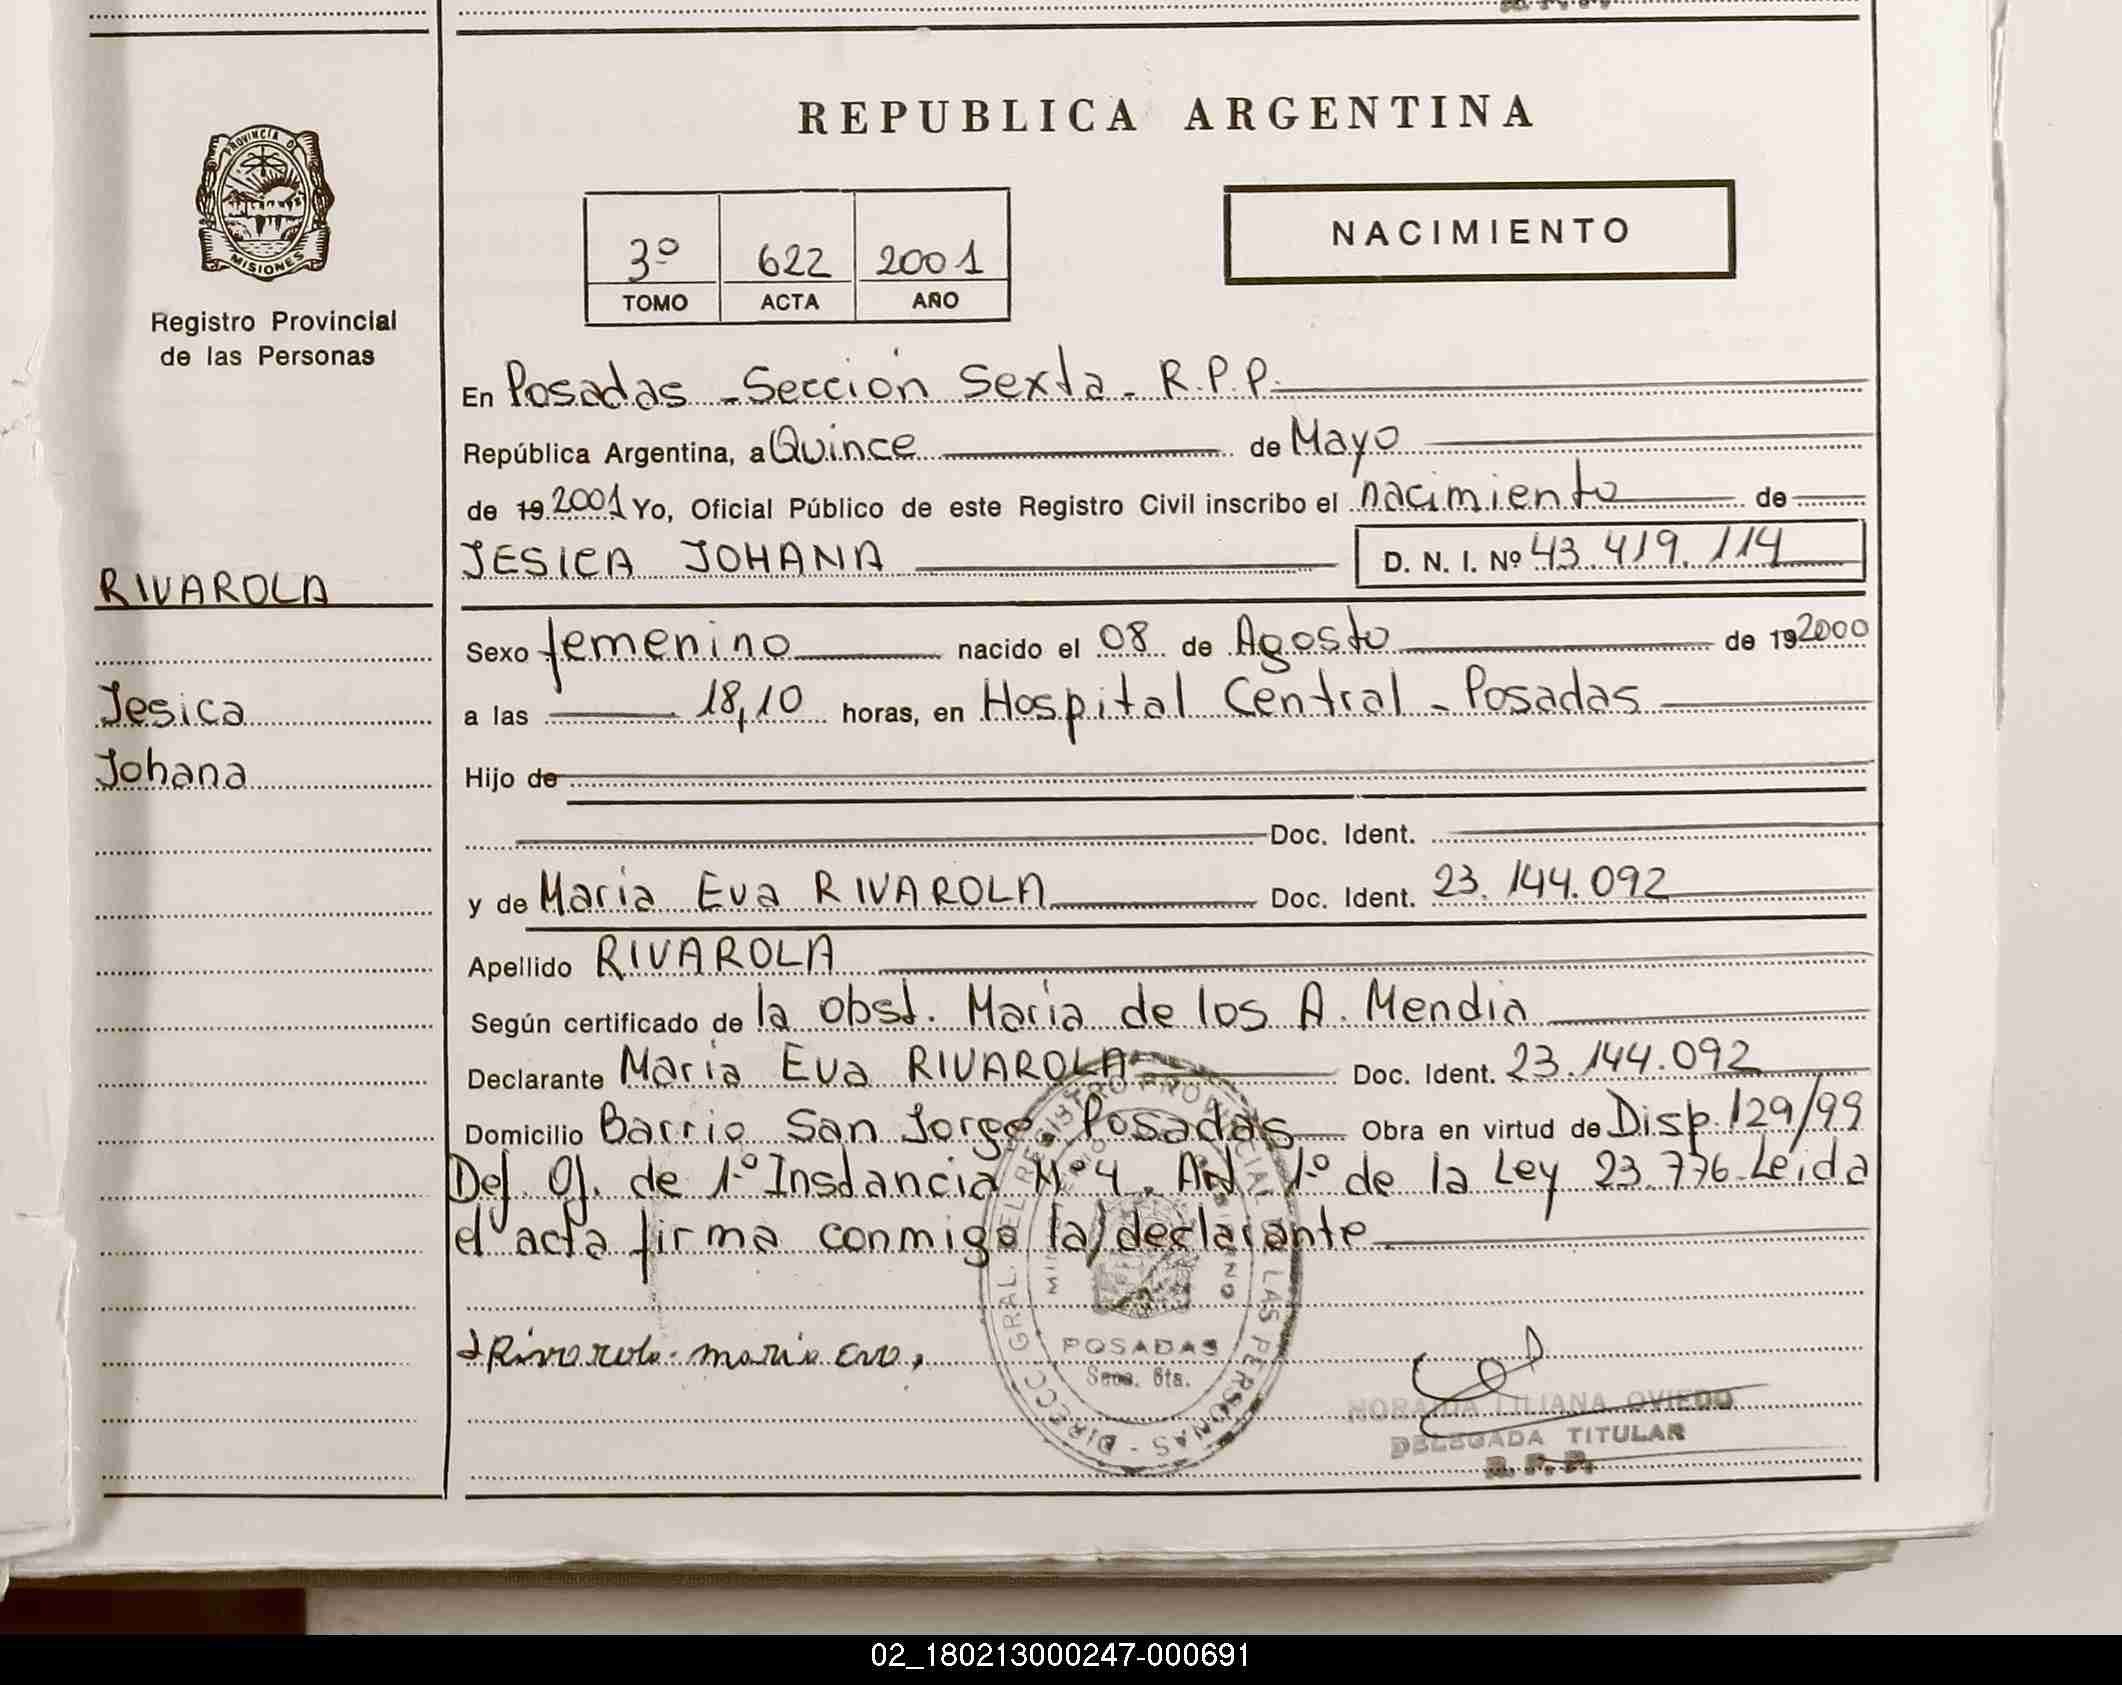 REPUBLICA ARGENTINA
PROVINCIA D
MISIONES
Registro Provincial
de las Personas
3º 622 2001
TOMO ACTA AÑO
NACIMIENTO
En Posadas - Sección Sexta - R.P.P.
República Argentina, a Quince de Mayo
de 19 2001 Yo, Oficial Público de este Registro Civil inscribo el nacimiento de
JESICA JOHANA D. N. I. Nº 43.419.114
RIVAROLA
Sexo femenino nacido el 08 de Agosto de 19 2000
Jesica
a las 18,10 horas, en Hospital Central - Posadas
Johana
Hijo de
Doc. Ident.
y de Maria Eva RIVAROLA Doc. Ident. 23.144.092
Apellido RIVAROLA
Según certificado de la obst. Maria de los A. Mendia
Declarante Maria Eva RIVAROLA Doc. Ident. 23.144.092
Domicilio Barrio San Jorge, Posadas Obra en virtud de Disp. 129/99
Def. Of. de 1º Instancia Nº 4. Art. 1º de la Ley 23.776. Leida
el acta firma conmigo la declarante
Rivarola maria eva
DIRECC. GRAL. DEL REGISTRO PROVINCIAL DE LAS PERSONAS
POSADAS
Secc. 6ta.
LILIANA OVIEDO
DELEGADA TITULAR
R. P. P.
02_180213000247-000691